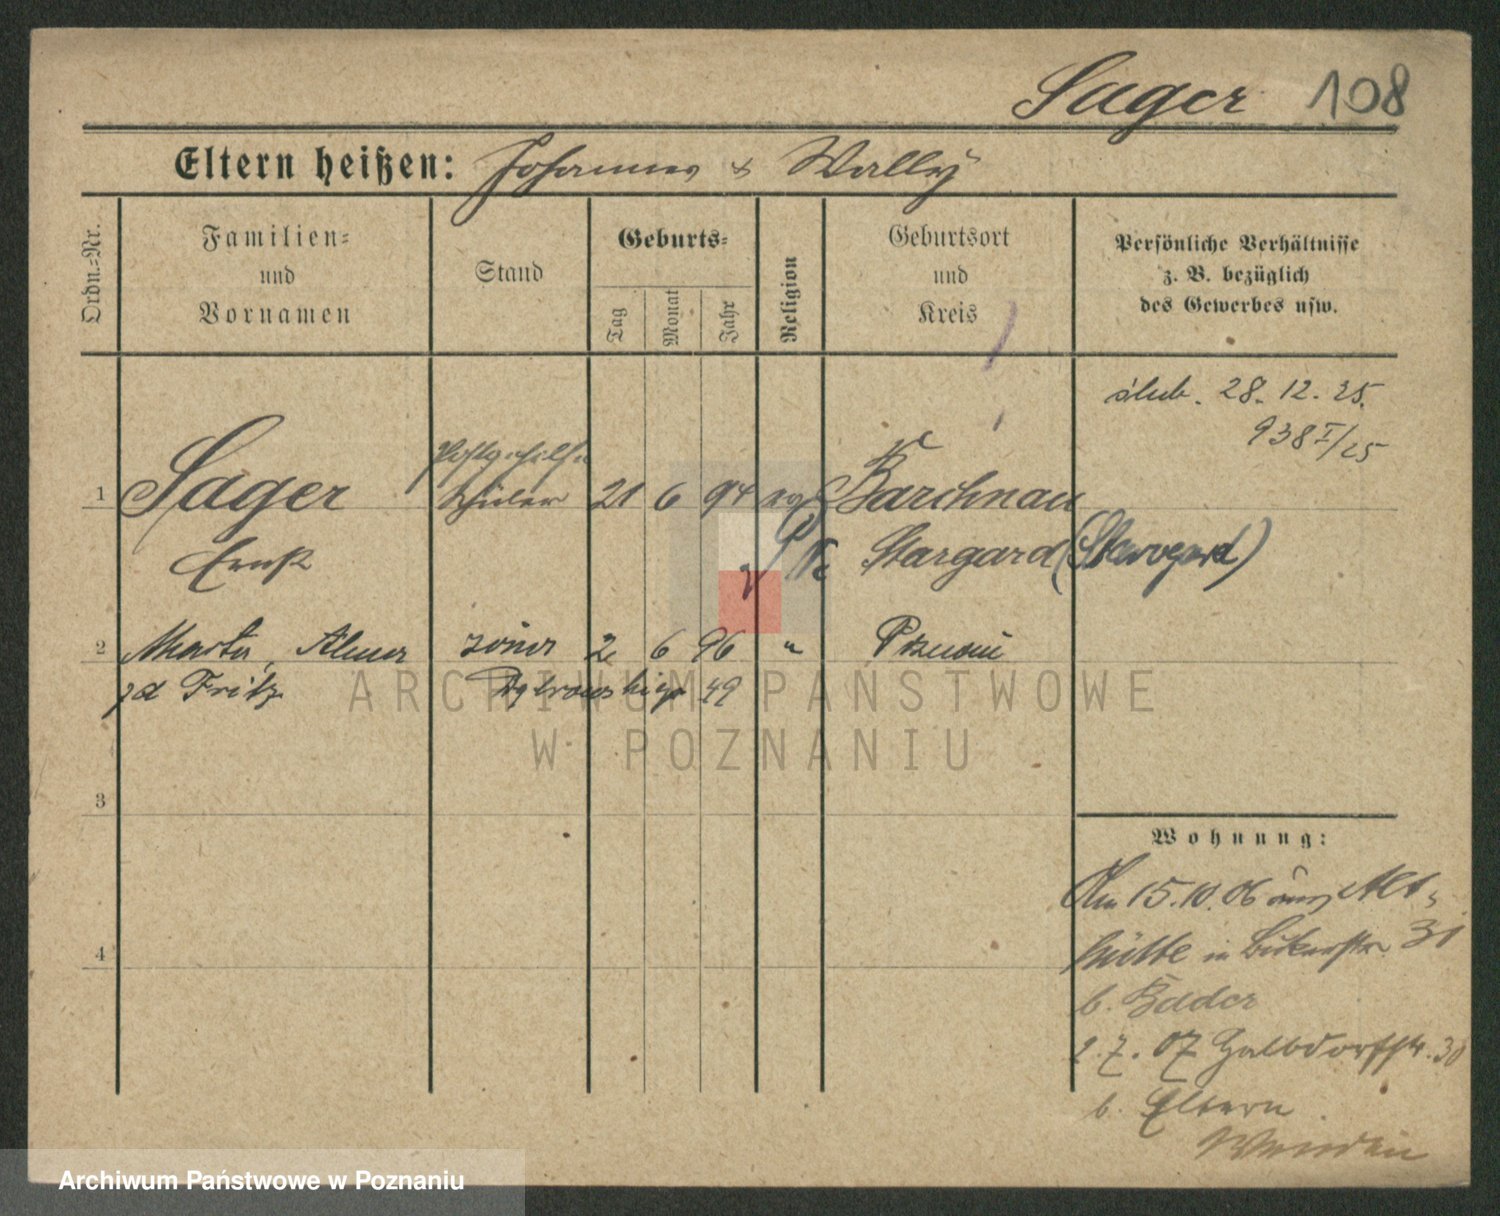 Sager 108
Eltern heißen: Johannes & Wally
Ordn.=Nr.
Familien=
und
Vornamen
Stand
Geburts=
Tag
Monat
Jahr
Religion
Geburtsort
und
Kreis
Persönliche Verhältnisse
z. B. bezüglich
des Gewerbes usw.
ślub. 28. 12. 25.
938 I/25
Postgehilfe
1 Sager Schüler 21 6 94 Barchnau
Ernst Stargard (Starogard)
2 Marta, żona 2 6 96 " Poznań
zd Fritz Dąbrowskiego 49
ARCHIWUM PAŃSTWOWE
W POZNANIU
3
Wohnung:
Am 15.10.06 aus Alt-
hütte in Bukerstr. 31
4
b. Bader
2.7.07 Halbdorfstr. 30
b. Eltern
Archiwum Państwowe w Poznaniu